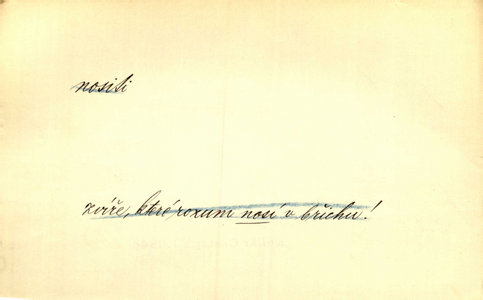 nositi
zvíře, které rozum nosí v břichu!